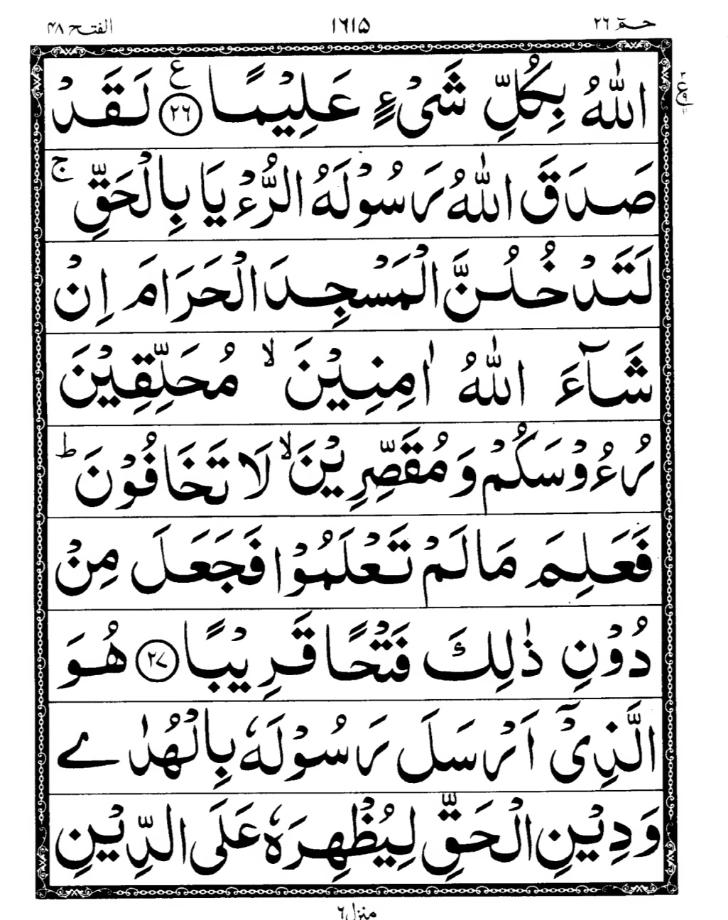 حٰمٓ ٢٦ ١٦١٥ الفتح ٤٨
اللّٰهُ بِكُلِّ شَیْءٍ عَلِیْمًا ﴿٢٦﴾ ع لَقَدْ
صَدَقَ اللّٰهُ رَسُوْلَهُ الرُّءْیَا بِالْحَقِّ ۚ
لَتَدْخُلُنَّ الْمَسْجِدَ الْحَرَامَ اِنْ
شَآءَ اللّٰهُ اٰمِنِیْنَ ۙ مُحَلِّقِیْنَ
رُءُوْسَكُمْ وَمُقَصِّرِیْنَ ۙ لَا تَخَافُوْنَ ؕ
فَعَلِمَ مَا لَمْ تَعْلَمُوْا فَجَعَلَ مِنْ
دُوْنِ ذٰلِكَ فَتْحًا قَرِیْبًا ﴿٢٧﴾ هُوَ
الَّذِیْۤ اَرْسَلَ رَسُوْلَهٗ بِالْهُدٰے
وَدِیْنِ الْحَقِّ لِیُظْهِرَهٗ عَلَی الدِّیْنِ
منزل ٦